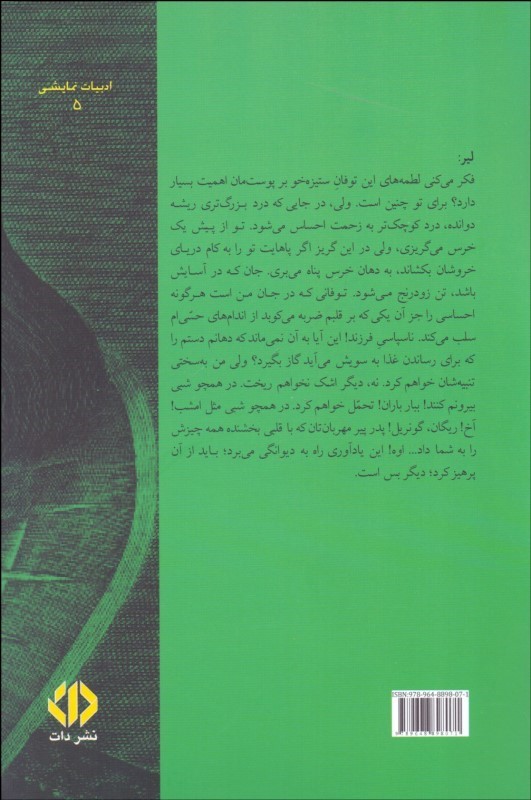 ادبیات نمایشی
۵
لیر:
فکر می‌کنی لطمه‌های این توفانِ ستیزه‌خو بر پوست‌مان اهمیت بسیار
دارد؟ برای تو چنین است. ولی، در جایی که درد بزرگ‌تری ریشه
دوانده، درد کوچک‌تر به زحمت احساس می‌شود. تو از پیش یک
خرس می‌گریزی، ولی در این گریز اگر پاهایت تو را به کام دریای
خروشان بکشاند، به دهان خرس پناه می‌بری. جان که در آسایش
باشد، تن زودرنج می‌شود. توفانی که در جان من است هرگونه
احساسی را جز آن یکی که بر قلبم ضربه می‌کوبد از اندام‌های حسّی‌ام
سلب می‌کند. ناسپاسیِ فرزند! این آیا به آن نمی‌ماند که دهانم دستم را
که برای رساندن غذا به سویش می‌آید گاز بگیرد؟ ولی من به‌سختی
تنبیه‌شان خواهم کرد. نه، دیگر اشک نخواهم ریخت. در همچو شبی
بیرونم کنند! ببار باران! تحمّل خواهم کرد. در همچو شبی مثل امشب!
آخ! ریگان، گونریل! پدر پیر مهربان‌تان که با قلبی بخشنده همه چیزش
را به شما داد... اوه! این یادآوری راه به دیوانگی می‌برد؛ باید از آن
پرهیز کرد؛ دیگر بس است.
ISBN:978-964-8898-07-1
نشر دات